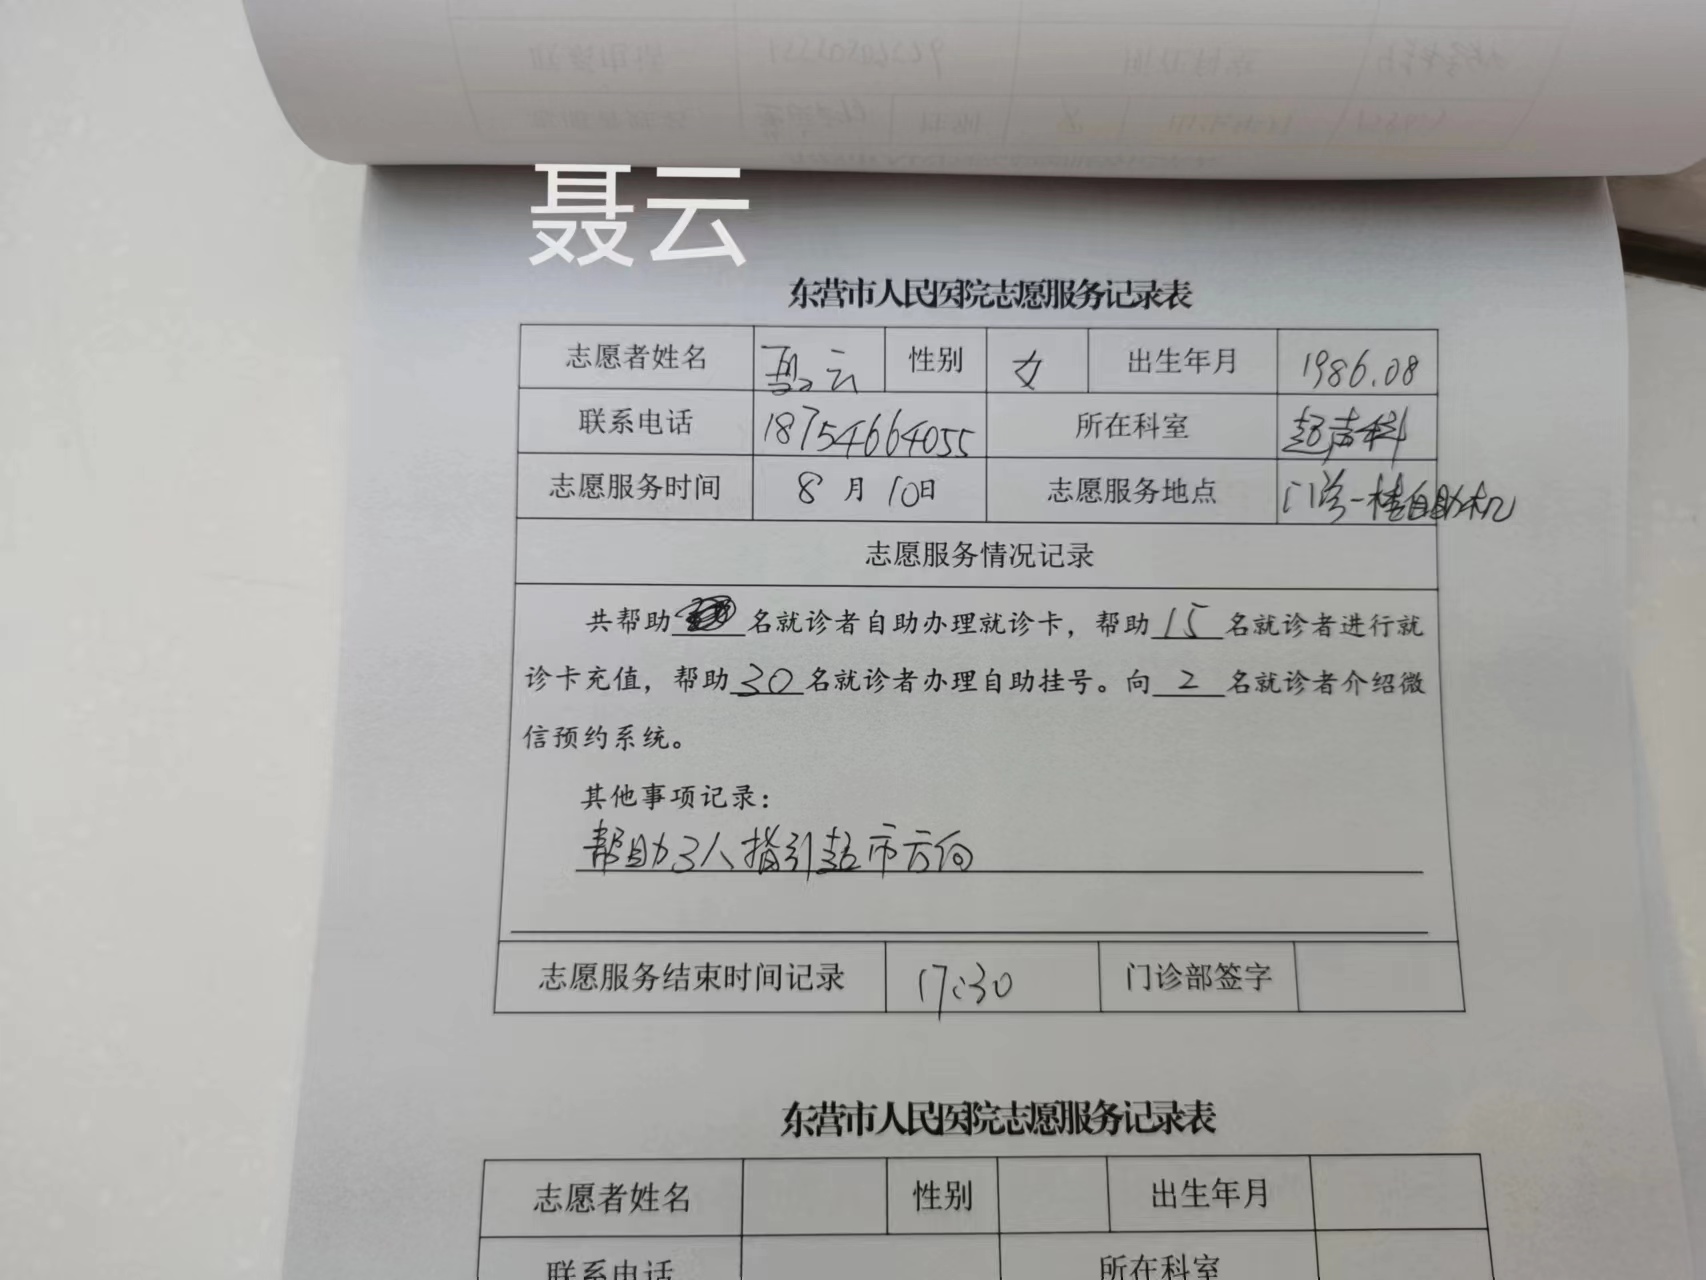 聂云
东营市人民医院志愿服务记录表
志愿者姓名 聂云 性别 女 出生年月 1986.08
联系电话 18754664055 所在科室 超声科
志愿服务时间 8月10日 志愿服务地点 门诊一楼自助机
志愿服务情况记录
共帮助 名就诊者自助办理就诊卡，帮助15名就诊者进行就
诊卡充值，帮助30名就诊者办理自助挂号。向2名就诊者介绍微
信预约系统。
其他事项记录：
帮助3人指引超市方向
志愿服务结束时间记录 17:30 门诊部签字
东营市人民医院志愿服务记录表
志愿者姓名 性别 出生年月
联系电话 所在科室